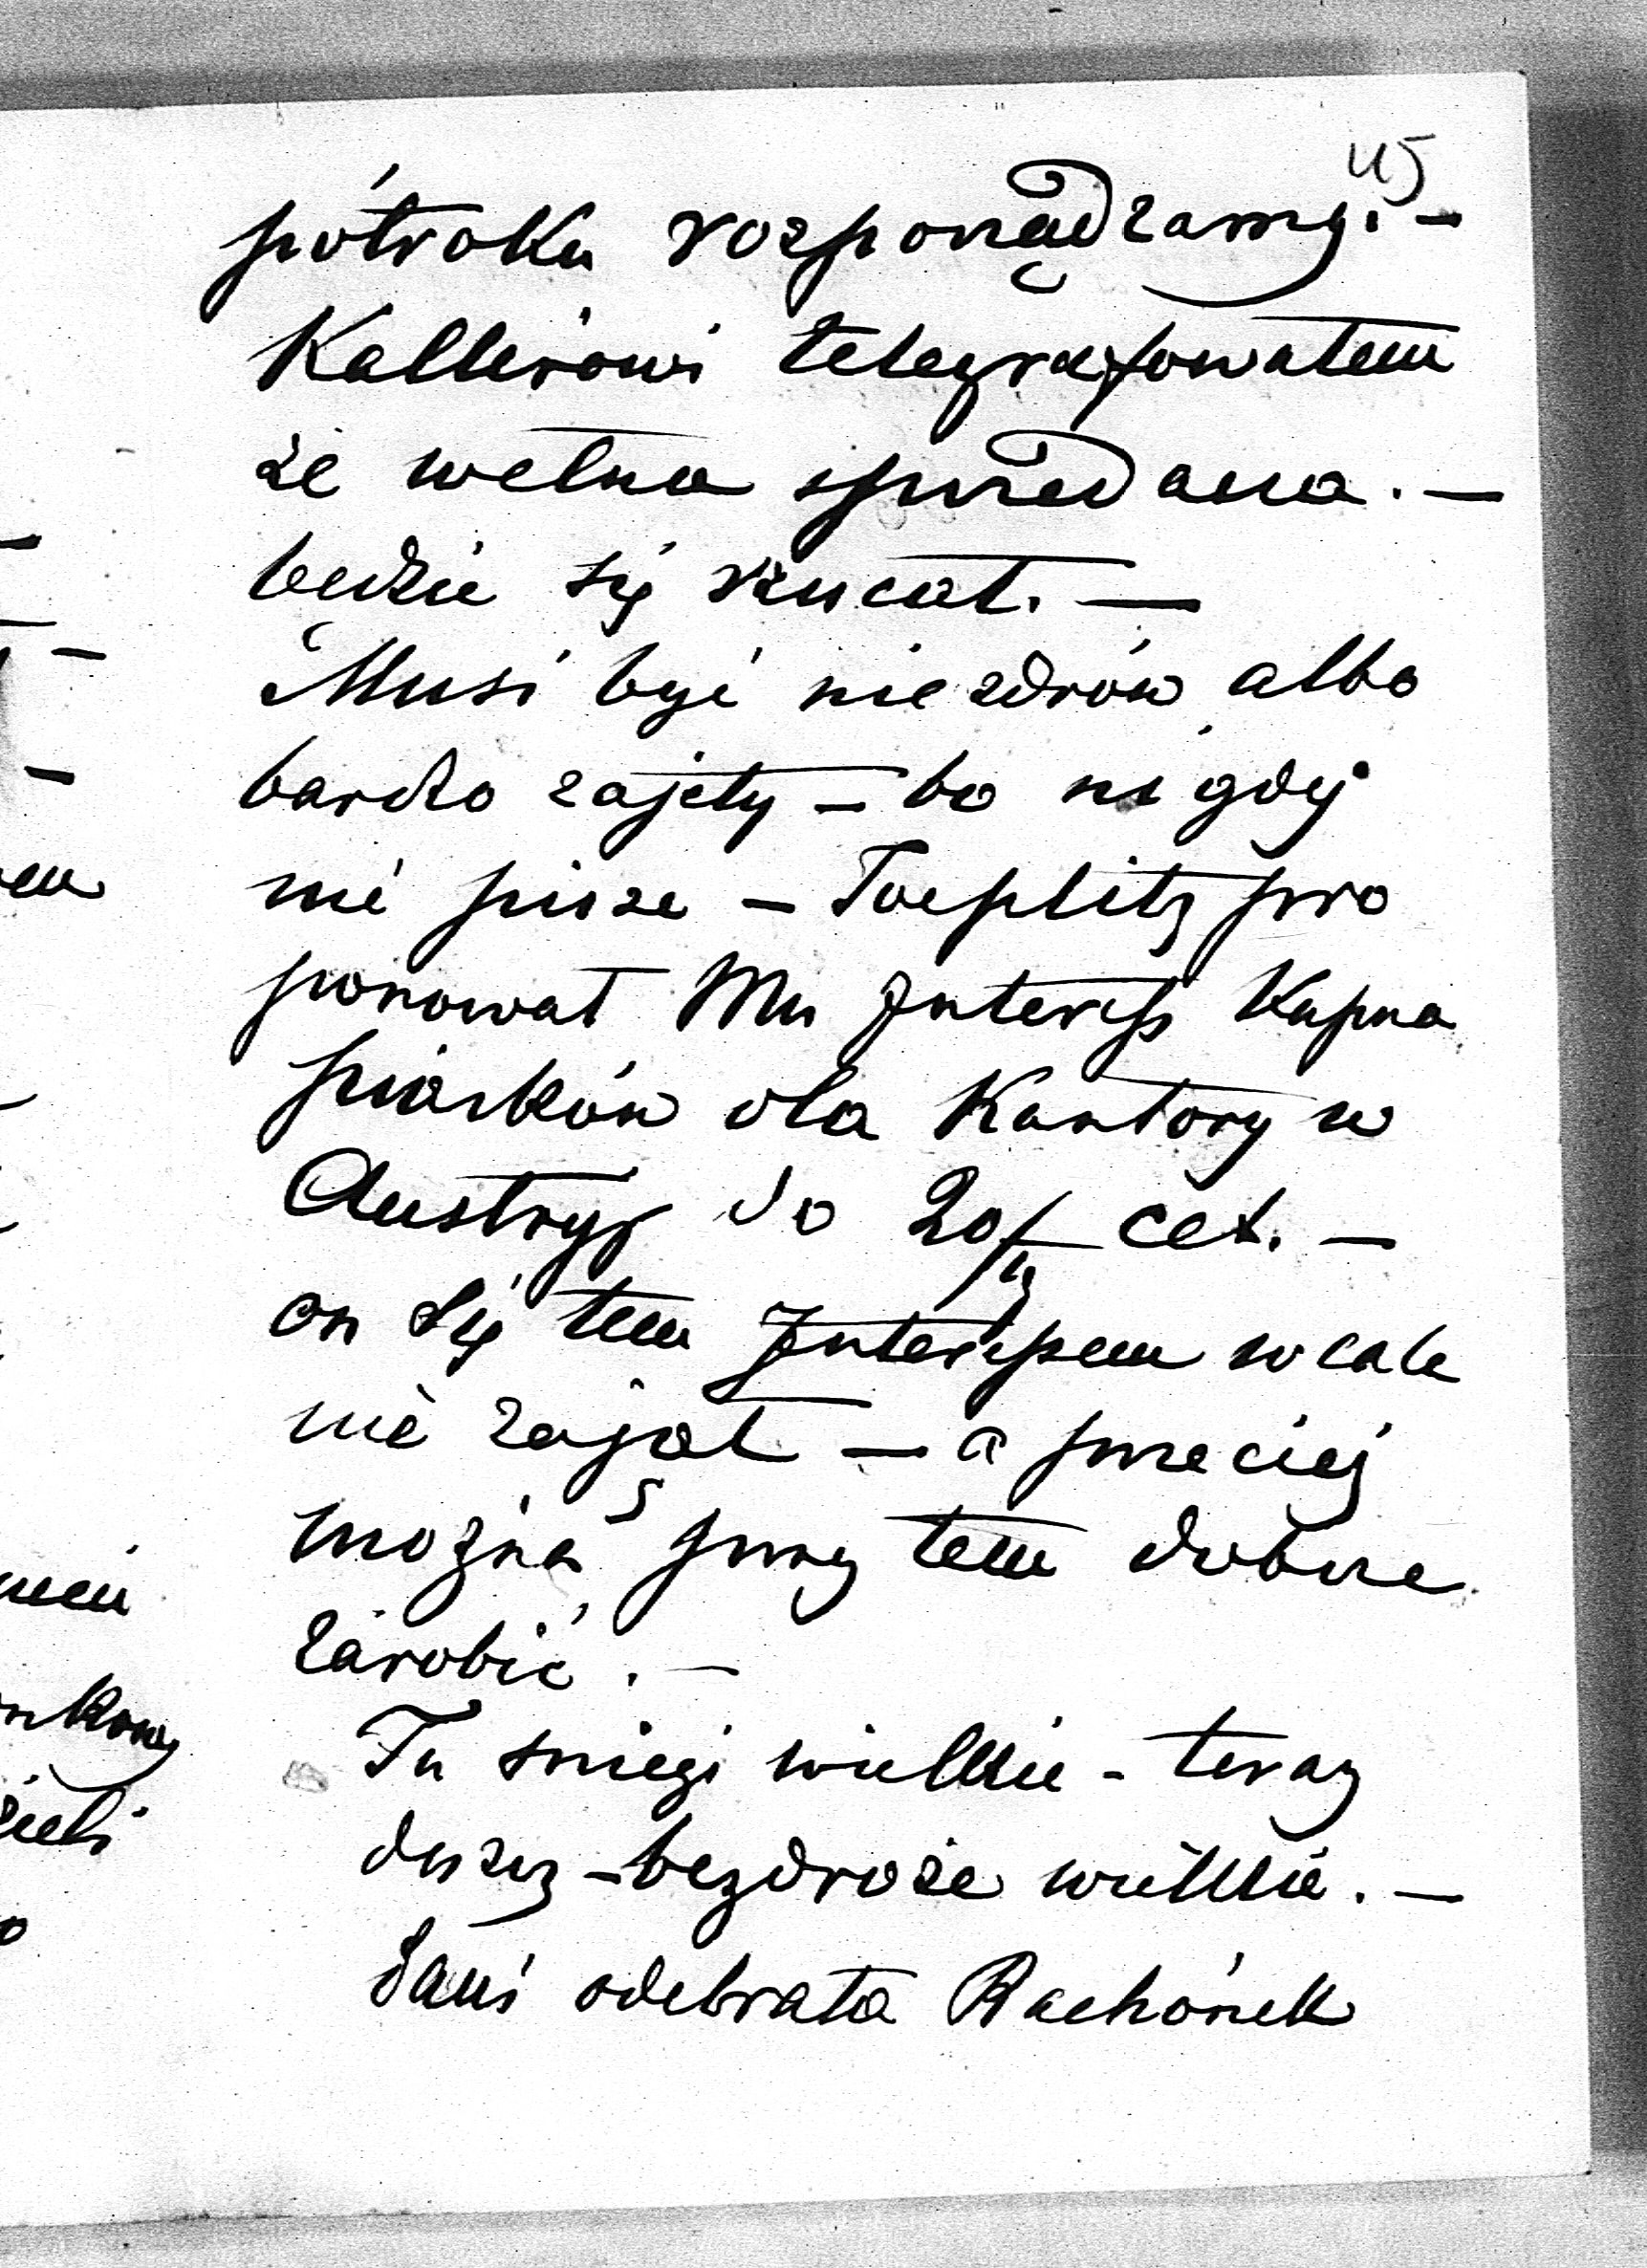 45
półroku rozporządzamy. —
Kallerowi telegrafowałem
że wełna sprzedana. —
będzie się rzucał. —
Musi być niezdrów albo
bardzo zajęty — bo nigdy
nie pisze — Toeplitz pro
ponował Mu Interess Kupna
piasków dla Kantory w
Austryi do 20/ cet. —
on się tem Interessem wcale
nie zajął — a przeciej
możnaś przy tem dobrze
zarobić. —
Tu śniegi wielkie - teraz
deszcz - bezdroże wielkie. —
odebrała Rachónek